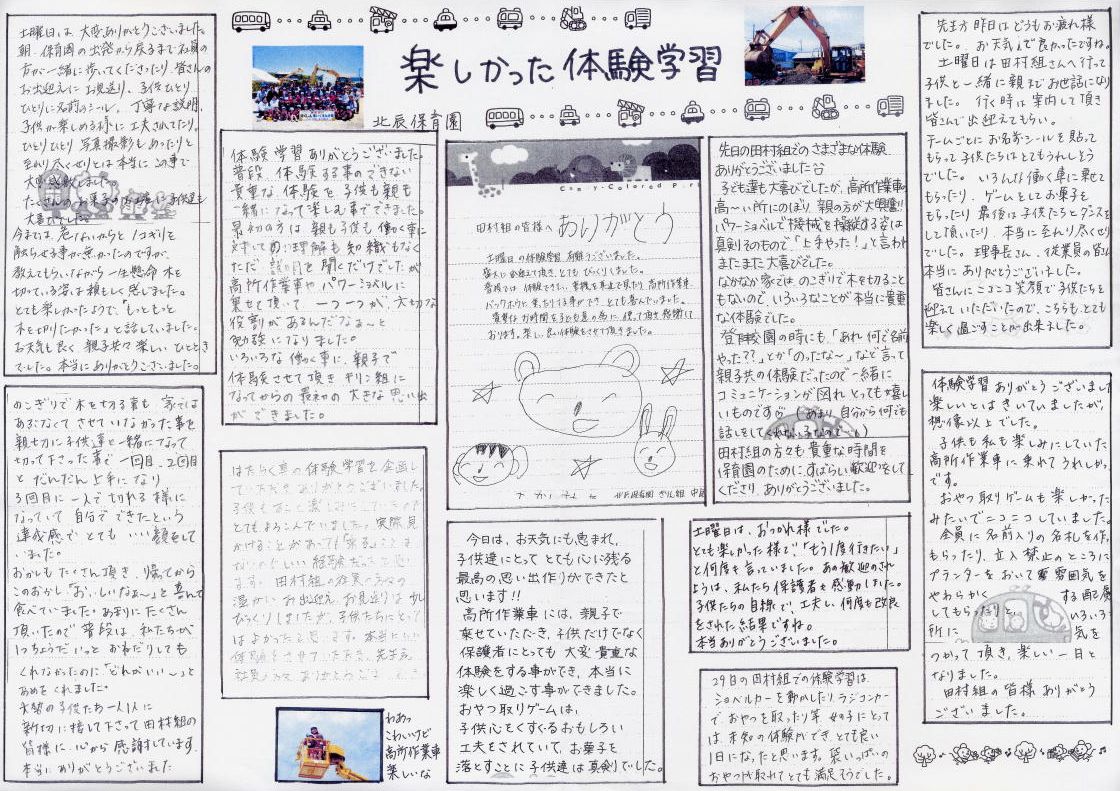 楽しかった体験学習
北辰保育園
土曜日は大変ありがとうございました。
朝、保育園の出発から戻るまで社員の
方が一緒に歩いてくださったり、皆さんの
お出迎えに お見送り、子供ひとり
ひとりに名前のシール、丁寧な説明、
子供が楽しめる様に工夫されてたり、
ひとりひとり写真撮影もあったりと
至れり尽くせりとは本当に この事で
大変感動しました。
たくさんのお菓子のお土産に子供達も
大喜びでした。
今までは、危ないからと ノコギリを
触らせる事が無かったのですが、
教えてもらいながら一生懸命 木を
切っている姿は頼もしく感じました。
とても楽しかったようで、「もっともっと
木を切りたかった」と話していました。
お天気も良く 親子共々 楽しい ひととき
でした。本当にありがとうございました。
のこぎりで木を切る事も 家では
あぶなくて させていなかった事を
親切に子供達と一緒になって
切って下さった事で 一回目、2回目
と だんだん上手になり
3回目に一人で切れる様に
なっていて 自分で できたという
達成感で とても いい顔をして
いました。
おかしもたくさん頂き 帰ってから
このおかし「おいしいなぁ〜」と喜んで
食べていました。あまりにたくさん
頂いたので普段は、私たちが
1つちょうだいっと おねだりしても
くれなかったのに「どれがいい〜」と
あめを くれました。
大勢の子供たち一人一人に
親切に接して下さって田村組の
皆様に 心から感謝しています。
本当に ありがとうございました
体験学習ありがとうございました。
普段、体験する事のできない
貴重な体験を子供も親も
一緒になって楽しむ事ができました。
最初の方は 親も子供も 働く車に
対して 理解も知識もなく
ただ 説明を聞くだけでしたが
高所作業車や パワーショベルに
乗せて頂いて 一つ一つが、大切な
役割があるんだなぁ〜と
勉強になりました。
いろいろな 働く車に、親子で
体験させて頂き キリン組に
なってからの最初の 大きな 思い出
が できました。
はたらく車の体験学習を企画し
て ありがとうございました。
とてもよろこんでいました。実際見
かけることがあっても「乗る」ことは
ます。田村組の社員のみなさんの
温かい お出迎え、お見送りは 少し
びっくりしましたが、子供たちにとって
はよかったと思います。本当に
わあっ
こわいけど
高所作業車
楽しいな
Crazy-Colored
田村組の皆様へ ありがとう
土曜日の体験学習、有難うございました。
盛大に出迎えて頂き、とても びっくりしました。
普段では 体験できない、重機を真近で見たり、高所作業車、
バックホウに、乗ったりする事ができ、とても喜んでいました。
貴重な お時間を子ども達の為に、使って頂き感謝して
おります。楽しい思い体験をさせて頂きました。
北辰保育園 きりん組
今日は、お天気にも恵まれ、
子供達にとって とても心に残る
最高の思い出作りができたと
思います!!
高所作業車には、親子で
乗せていただき、子供だけでなく
保護者にとっても 大変 貴重な
体験をする事ができ、本当に
楽しく過ごす事ができました。
おやつ取りゲームは、
子供心をくすぐるおもしろい
工夫をされていて、お菓子を
落とすことに 子供達は真剣でした。
先日の田村組でのさまざまな体験
ありがとうございました
子ども達も大喜びでしたが、高所作業車の
高〜い所にのぼり、親の方が大興奮!!
パワーショベルで機械を操縦する姿は
真剣そのもので「上手やった!」と言われ
またまた大喜びでした。
なかなか家では のこぎりで木を切ること
もないので、いろいろなことが本当に貴重
な体験でした。
登降園の時にも、「あれ 何て名前
やった??」とか「のったな〜」など言って
親子共の体験だったので一緒に
コミュニケーションが図れ とっても嬉し
いものです (あまり 自分から何でも
話しをしてくれない子なので…)
田村組の方々も貴重な時間を
保育園のために、すばらしい歓迎をして
くださり、ありがとうございました。
土曜日は、おつかれ様でした。
とても楽しかった様で、「もう1度行きたい」
と何度も言っていました。あの歓迎のされ
ようは、私たち保護者も感動しました。
子供たちの目線で、工夫し、何度も改良
をされた結果ですね。
本当ありがとうございました。
29日の田村組での体験学習は、
ショベルカーを動かしたり、ラジコンカー
で おやつを取ったり等 女の子にとって
は 未知の体験ができ、とても良い
1日になったと思います。袋いっぱいの
おやつが取れてとても満足そうでした。
先生方 昨日はどうもお疲れ様
でした。お天気で良かったですね。
土曜日は田村組さんへ行って
子供と一緒に親までお世話になり
ました。行く時は案内して頂き
皆さんで出迎えてもらい。
チームごとにお名前シールを貼って
もらって子供たちはとてもうれしそう
でした。いろんな働く車に乗せて
もらったり、ゲームとしてお菓子を
もらったり 最後は子供たちとダンスを
して頂いたり、本当に至れり尽くせり
でした。理事長さん、従業員の皆さん
本当に ありがとうございました。
皆さんにニコニコ笑顔で子供たちを
迎えて いただいたので、こちらも、とても
楽しく過ごすことが出来ました。
体験学習ありがとうございました
楽しいとは きいていましたが、
想像以上でした。
子供も私も楽しみにしていた
高所作業車に乗れて うれしかった
です。
おやつ取りゲームも楽しかった
みたいでニコニコしていました。
全員に名前入りの名札を作って
もらったり、立入禁止のところに
プランターをおいて 雰囲気を
やわらかく する配慮
してもらったりと、いろいろ
所に 気を
つかって頂き、楽しい一日と
なりました。
田村組の皆様 ありがとう
ございました。